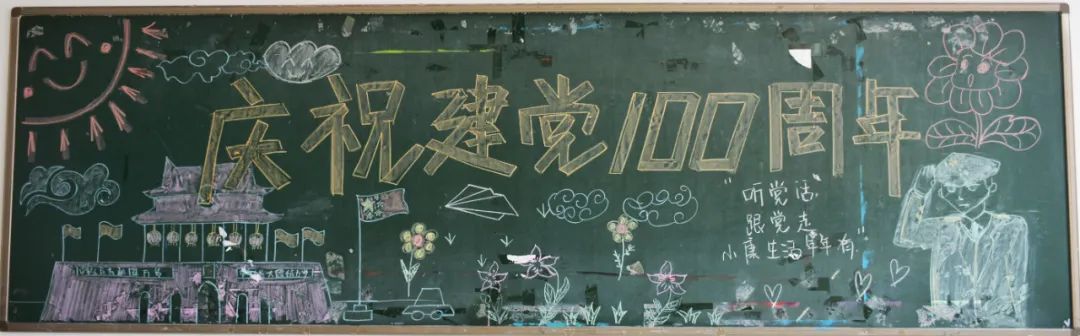 庆祝建党100周年
"听党话
跟党走
小康生活年年有"